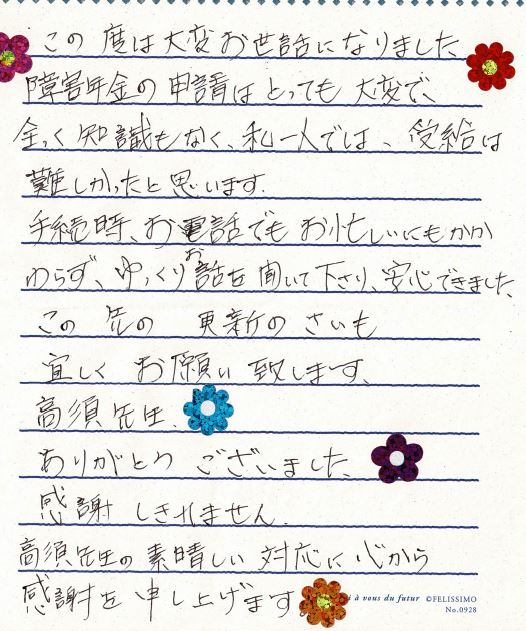 この度は大変お世話になりました。
障害年金の申請はとっても大変で、
全っく知識もなく、私一人では、受給は
難しかったと思います。
手続時、お電話でもお忙しいにもかか
わらず、ゆっくりお話を聞いて下さり、安心できました。
この先の更新のさいも
宜しくお願い致します。
高須先生、
ありがとうございました。
感謝しきれません。
高須先生の素晴しい対応に心から
感謝を申し上げます
i à vous du futur ©FELISSIMO
No.0928